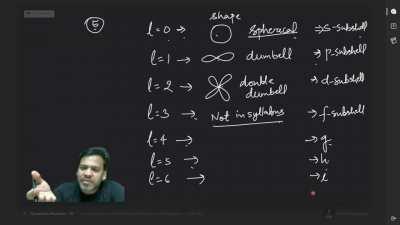 5 shape
l=0 → spherical → s-subshell
l=1 → dumbell → p-subshell
l=2 → double → d-subshell
dumbell
l=3 → Not in syllabus → f-subshell
l=4 → → g
l=5 → → h
l=6 → → i